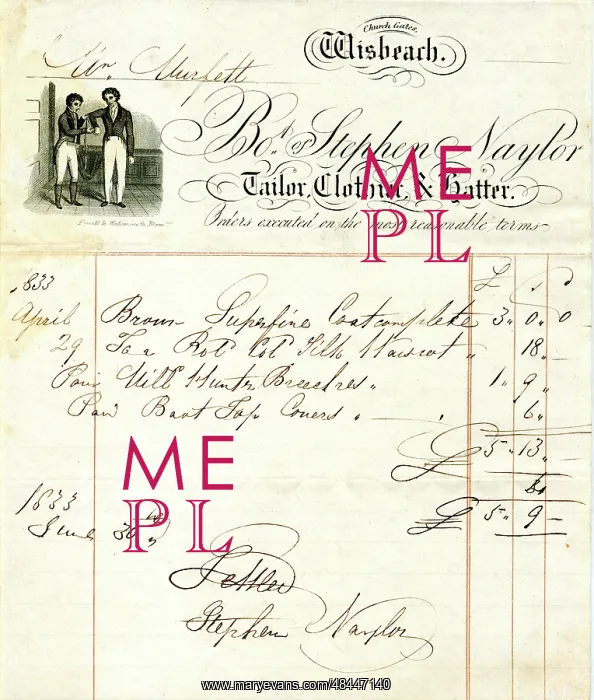 Church Gates,
Wisbeach.
Mr. Murfett
Bot. of Stephen Naylor
Tailor, Clothier, & Hatter.
Orders executed on the most reasonable terms
ME
PL
1833
£ s d
April Brown Superfine Coat complete 3 " 0 " 0
29 To a Silk Waiscot " 18 "
Pair Mill Hunts Breeches " 1 " 9 "
Pair Boot Top Covers " 6 "
£ 5 " 13 "
ME
PL
£ 5 " 9 -
1833
June 30
Settled
Stephen Naylor
www.maryevans.com/48447140